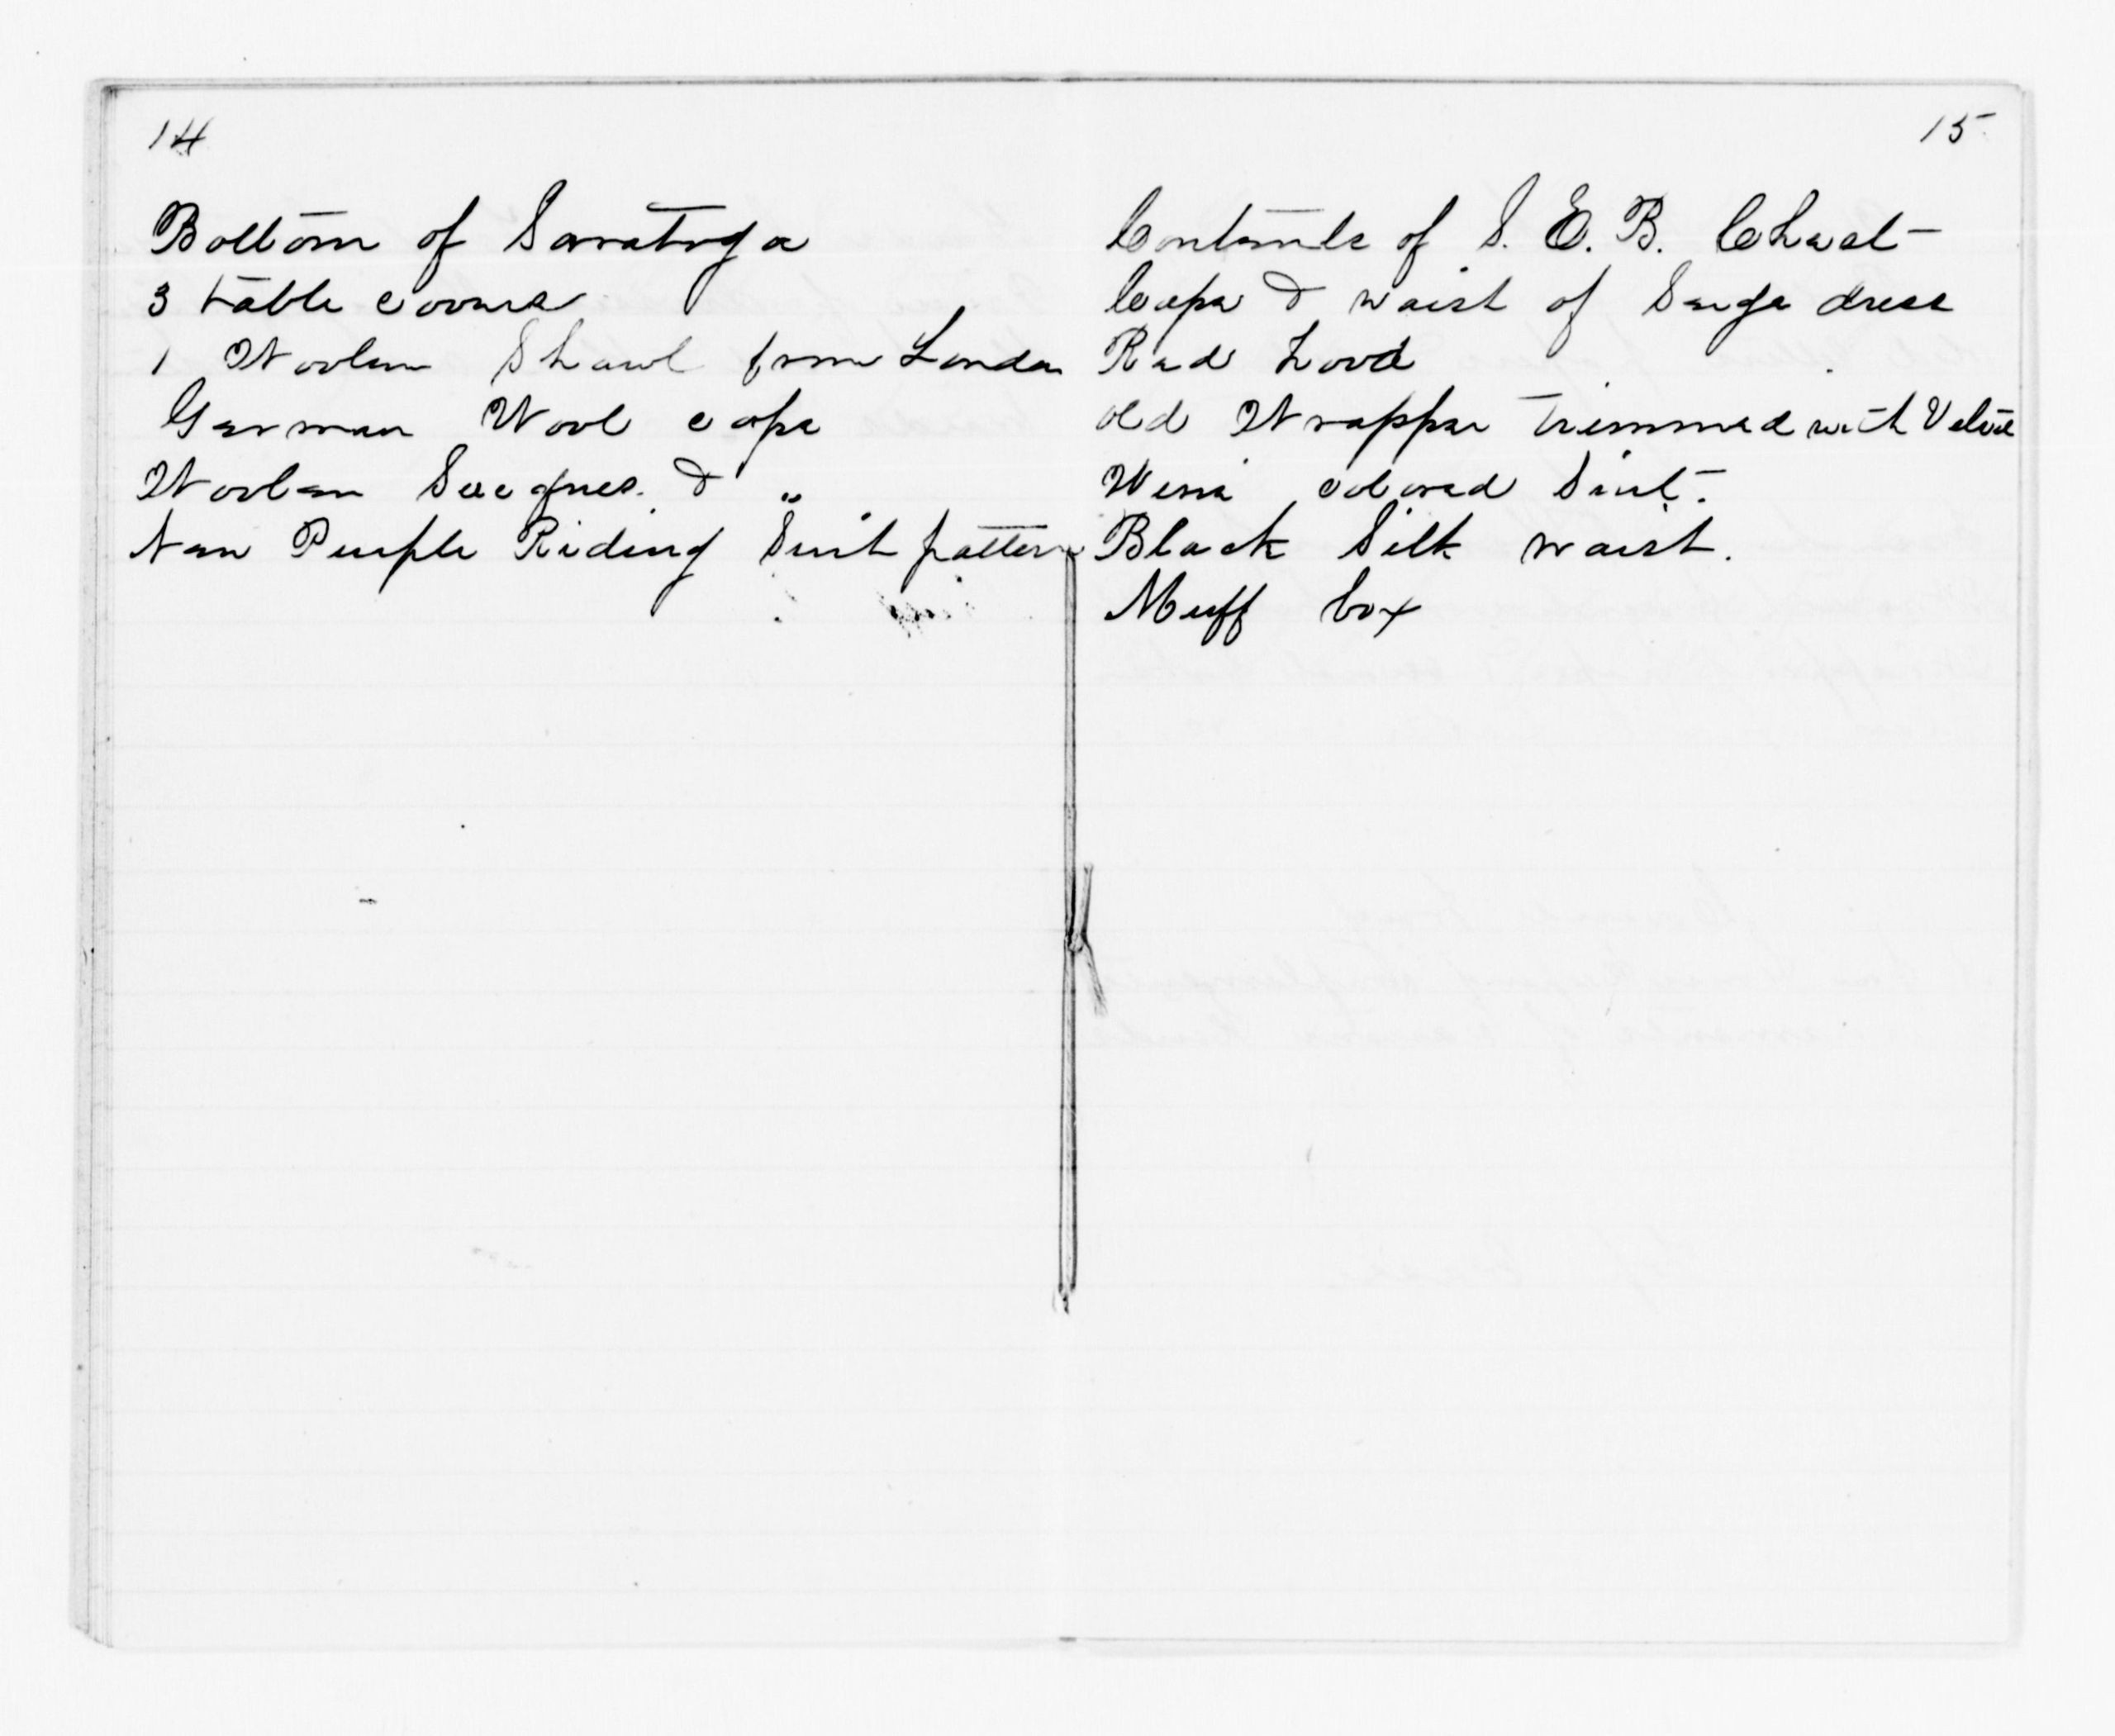 14
Bottom of Saratoga
3 table covers
1 Woolen Shawl from London
German Wool cape
Woolen Sacques. & "
New Purple Riding Suit pattern
15
Contents of S. E. B. Chest
Cape & waist of Serge dress
Red hood
old Wrapper trimmed with Velvet
Wine colored Suit.
Black Silk waist.
Muff box